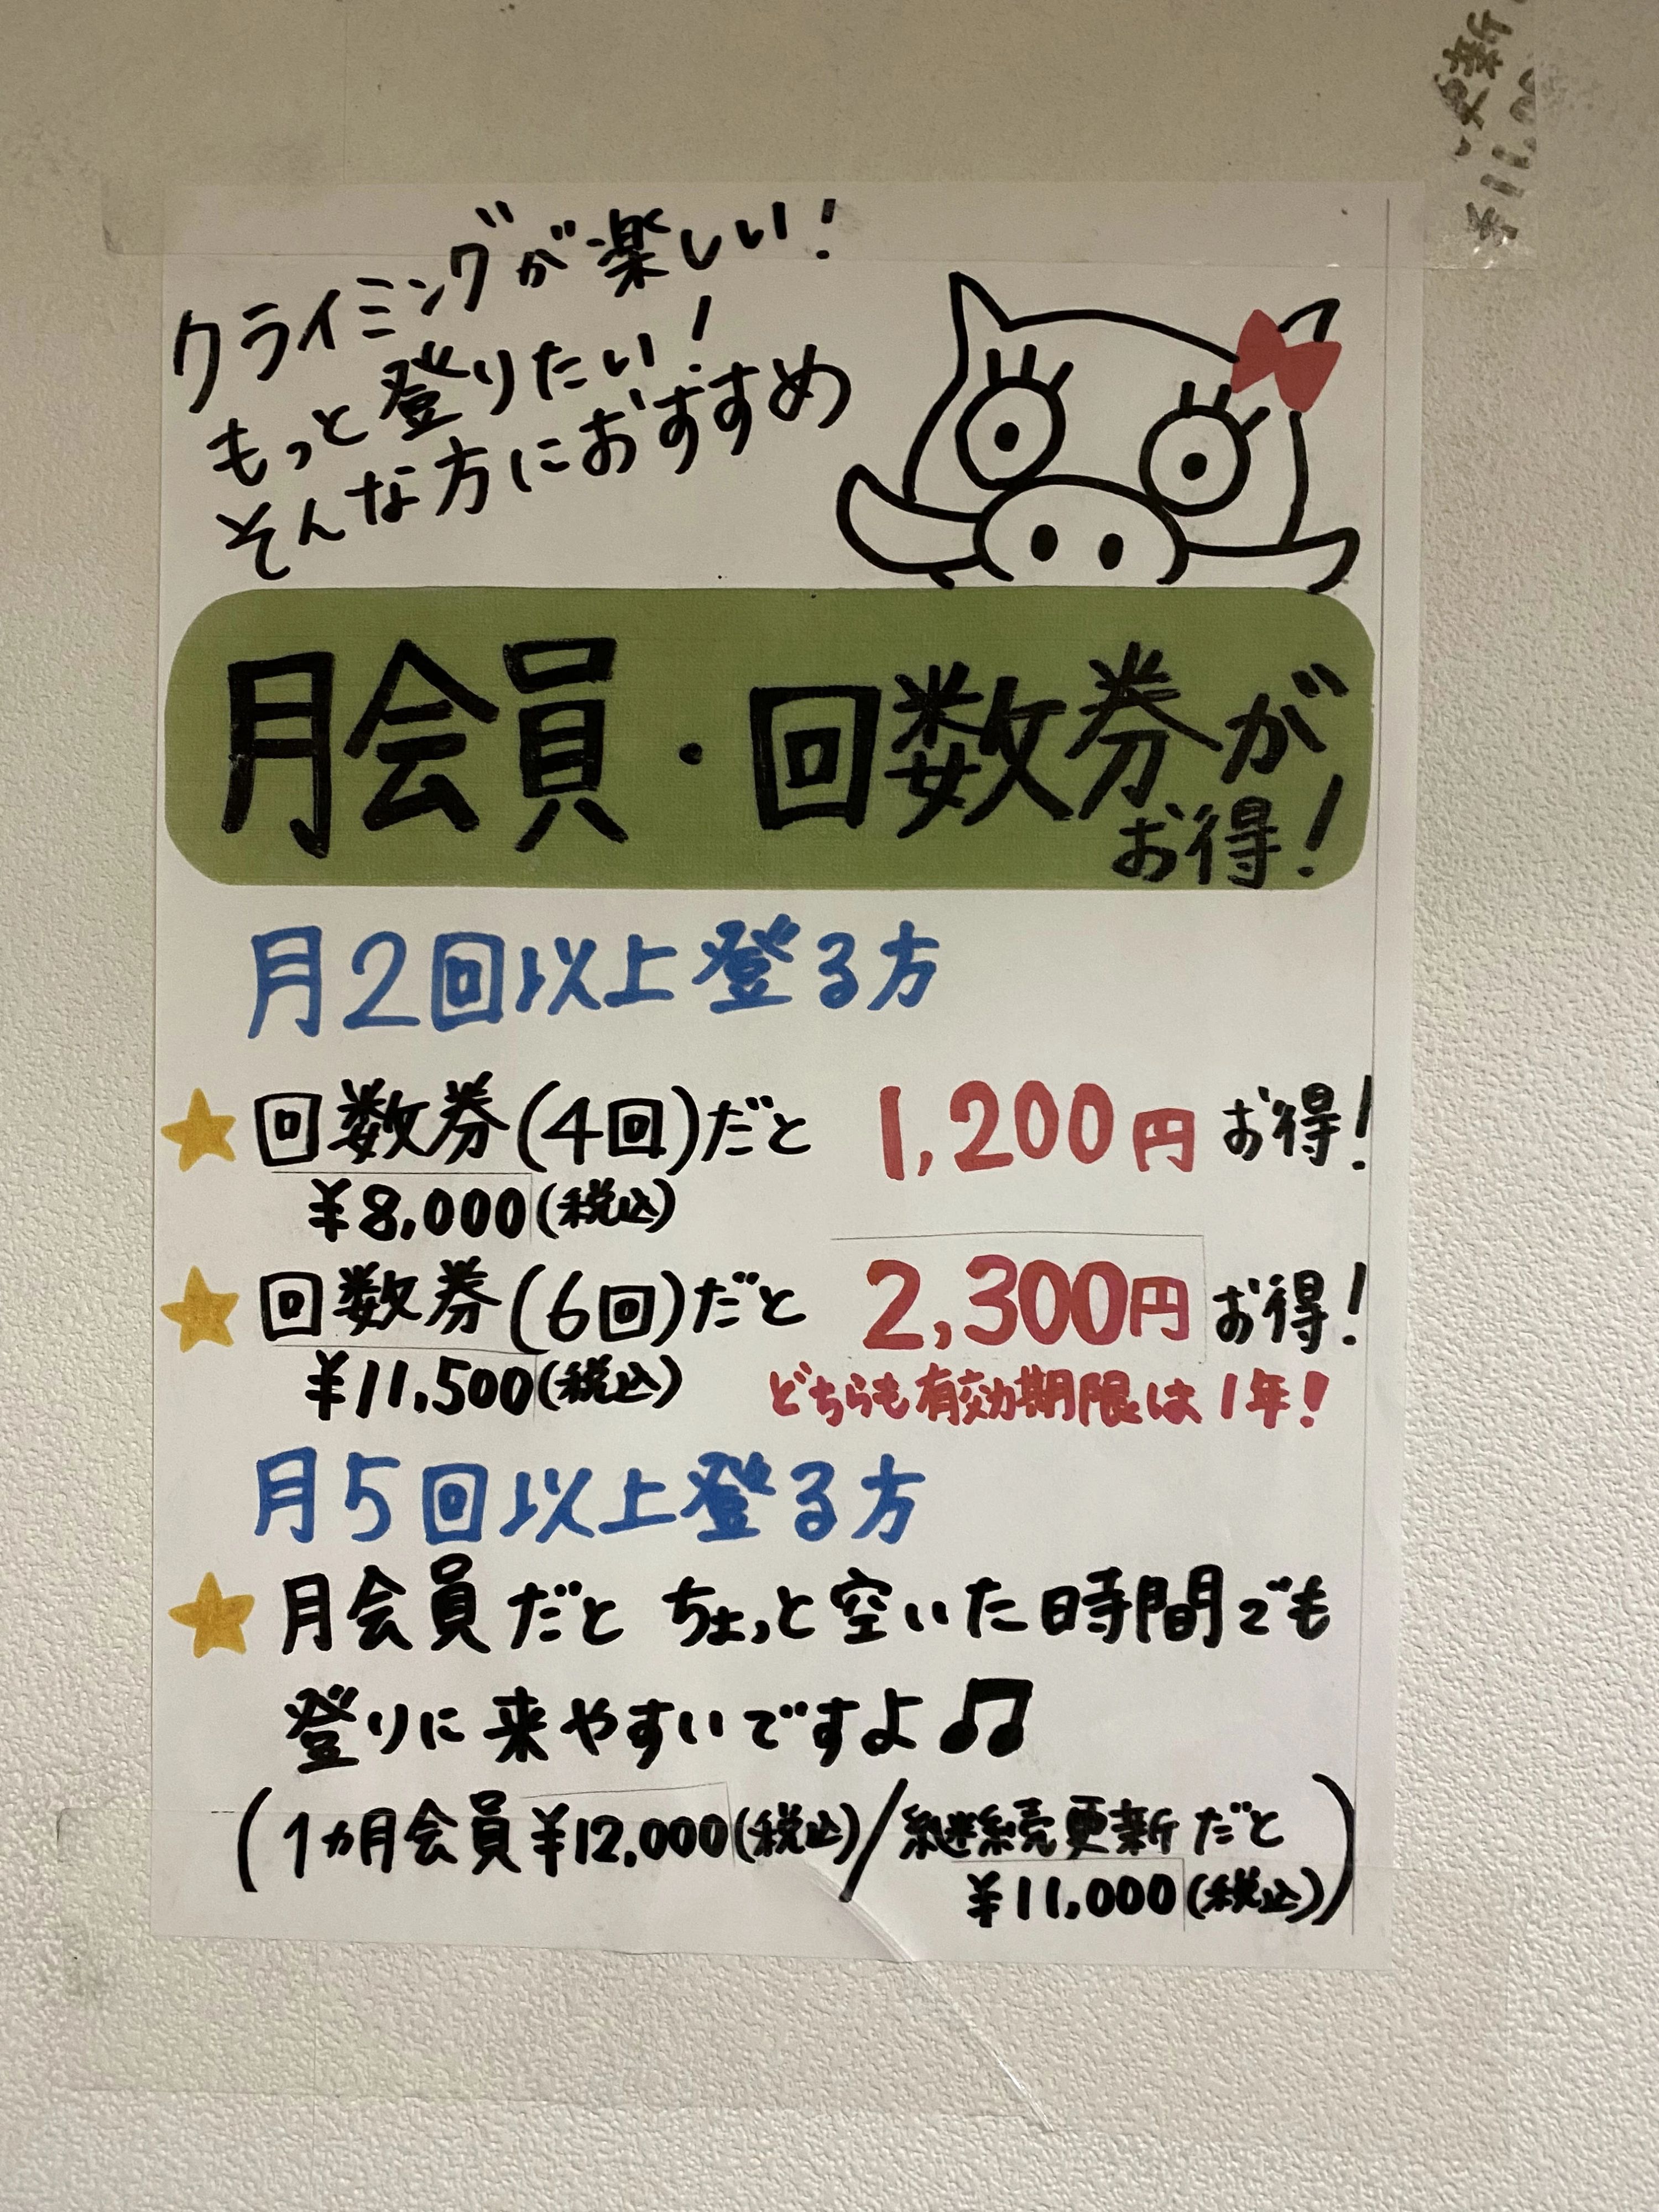 更新
¥11,00
クライミングが楽しい!
もっと登りたい!
そんな方におすすめ
月会員・回数券が
お得!
月2回以上登る方
回数券(4回)だと 1,200円お得!
¥8,000(税込)
回数券(6回)だと 2,300円お得!
¥11,500(税込) どちらも有効期限は1年!
月5回以上登る方
月会員だと ちょっと空いた時間でも
登りに来やすいですよ♫
(1ヵ月会員¥12,000(税込)/継続更新だと
¥11,000(税込))